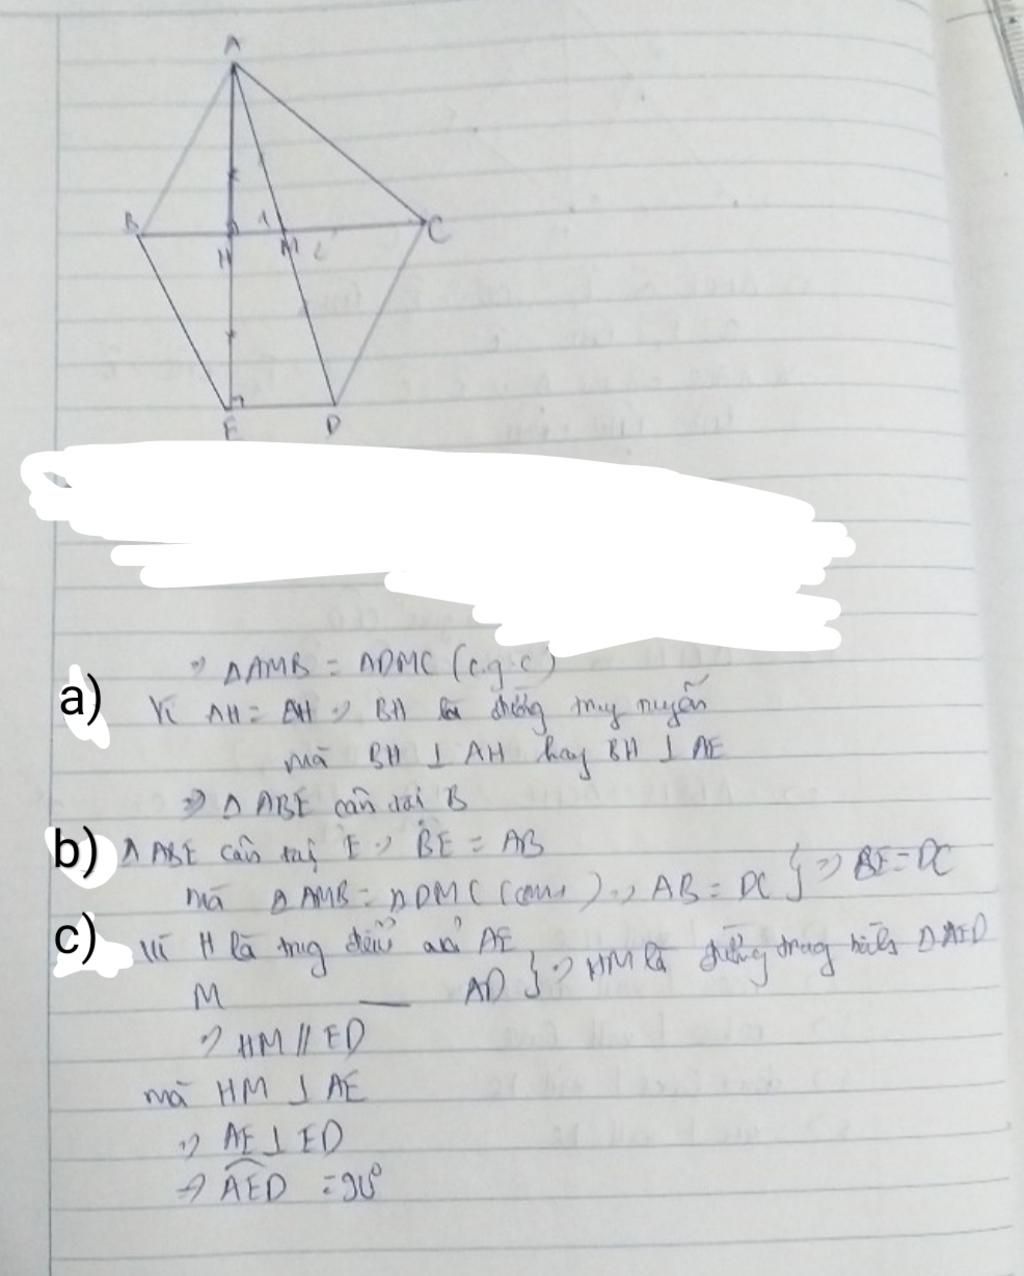 A
B
H
1
M
2
C
E
D
⇒ ΔAMB = ΔDMC (c.g.c)
a) Vì AH = EH ⇒ BH là đường trung tuyến
mà BH ⊥ AH hay BH ⊥ AE
⇒ Δ ABE cân tại B
b) Δ ABE cân tại E ⇒ BE = AB
mà ΔAMB = ΔDMC (cmt) ⇒ AB = DC } ⇒ BE = DC
c) Vì H là trung điểm của AE
M — AD } ⇒ HM là đường trung bình ΔAED
⇒ HM // ED
mà HM ⊥ AE
⇒ AE ⊥ ED
⇒ \widehat{AED} = 90°